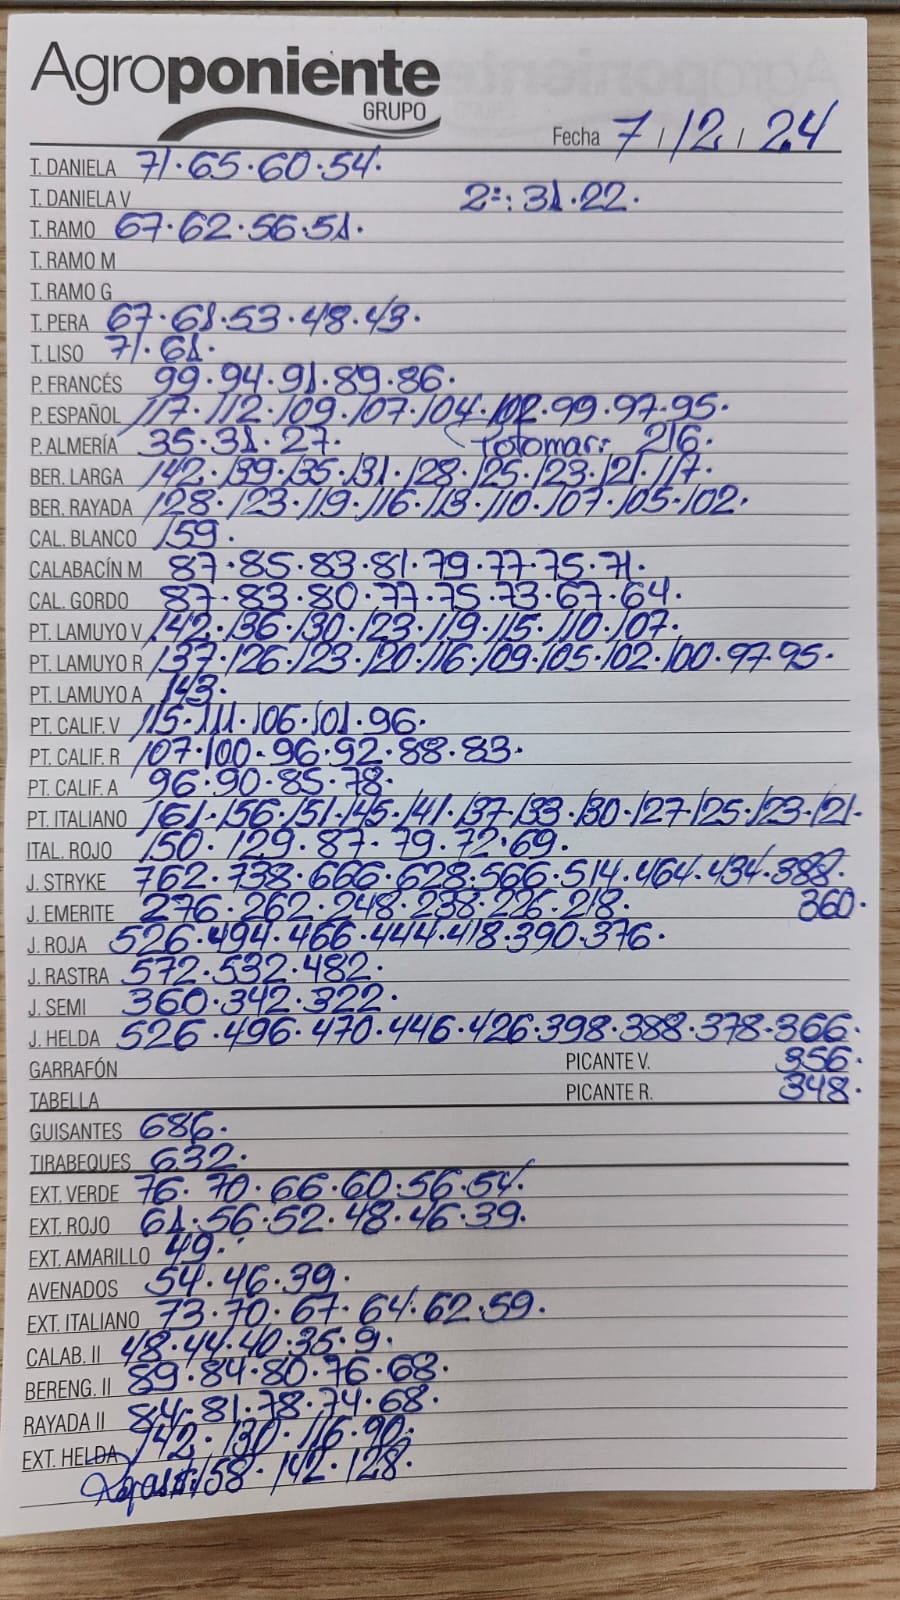 Agroponiente
GRUPO
Fecha 7 / 12 / 24
T. DANELA 71·65·60·54·
T. DANIELA V 2ª: 31·22·
T. RAMO 67·62·56·51·
T. RAMO M
T. RAMO G
T. PERA 67·61·53·48·43·
T. LISO 71·61·
P. FRANCÉS 99·94·91·89·86·
P. ESPAÑOL 117·112·109·107·104·102·99·97·95·
P. ALMERÍA 35·31·27· 216·
BER. LARGA 142·139·135·131·128·125·123·121·117·
BER. RAYADA 128·123·119·116·113·110·107·105·102·
CAL. BLANCO 159·
CALABACÍN M 87·85·83·81·79·77·75·71·
CAL. GORDO 87·83·80·77·75·73·67·64·
PT. LAMUYO V 142·136·130·123·119·115·110·107·
PT. LAMUYO R 137·126·123·120·116·109·105·102·100·97·95·
PT. LAMUYO A 143·
PT. CALIF. V 115·111·106·101·96·
PT. CALIF. R 107·100·96·92·88·83·
PT. CALIF. A 96·90·85·78·
PT. ITALIANO 161·156·151·145·141·137·133·130·127·125·123·121·
ITAL. ROJO 150·129·87·79·72·69·
J. STRYKE 762·738·666·628·566·514·464·434·388·
J. EMERITE 276·262·248·238·226·218· 360·
J. ROJA 526·494·466·444·418·390·376·
J. RASTRA 572·532·482·
J. SEMI 360·342·322·
J. HELDA 526·496·470·446·426·398·388·378·366·
GARRAFÓN PICANTE V. 356·
TABELLA PICANTE R. 348·
GUISANTES 686·
TIRABEQUES 632·
EXT. VERDE 76·70·66·60·56·54·
EXT. ROJO 61·56·52·48·46·39·
EXT. AMARILLO 49·
AVENADOS 54·46·39·
EXT. ITALIANO 73·70·67·64·62·59·
CALAB. II 48·44·40·35·9·
BERENG. II 89·84·80·76·68·
RAYADA II 84·81·78·74·68·
EXT. HELDA 142·130·116·90·
158·142·128·